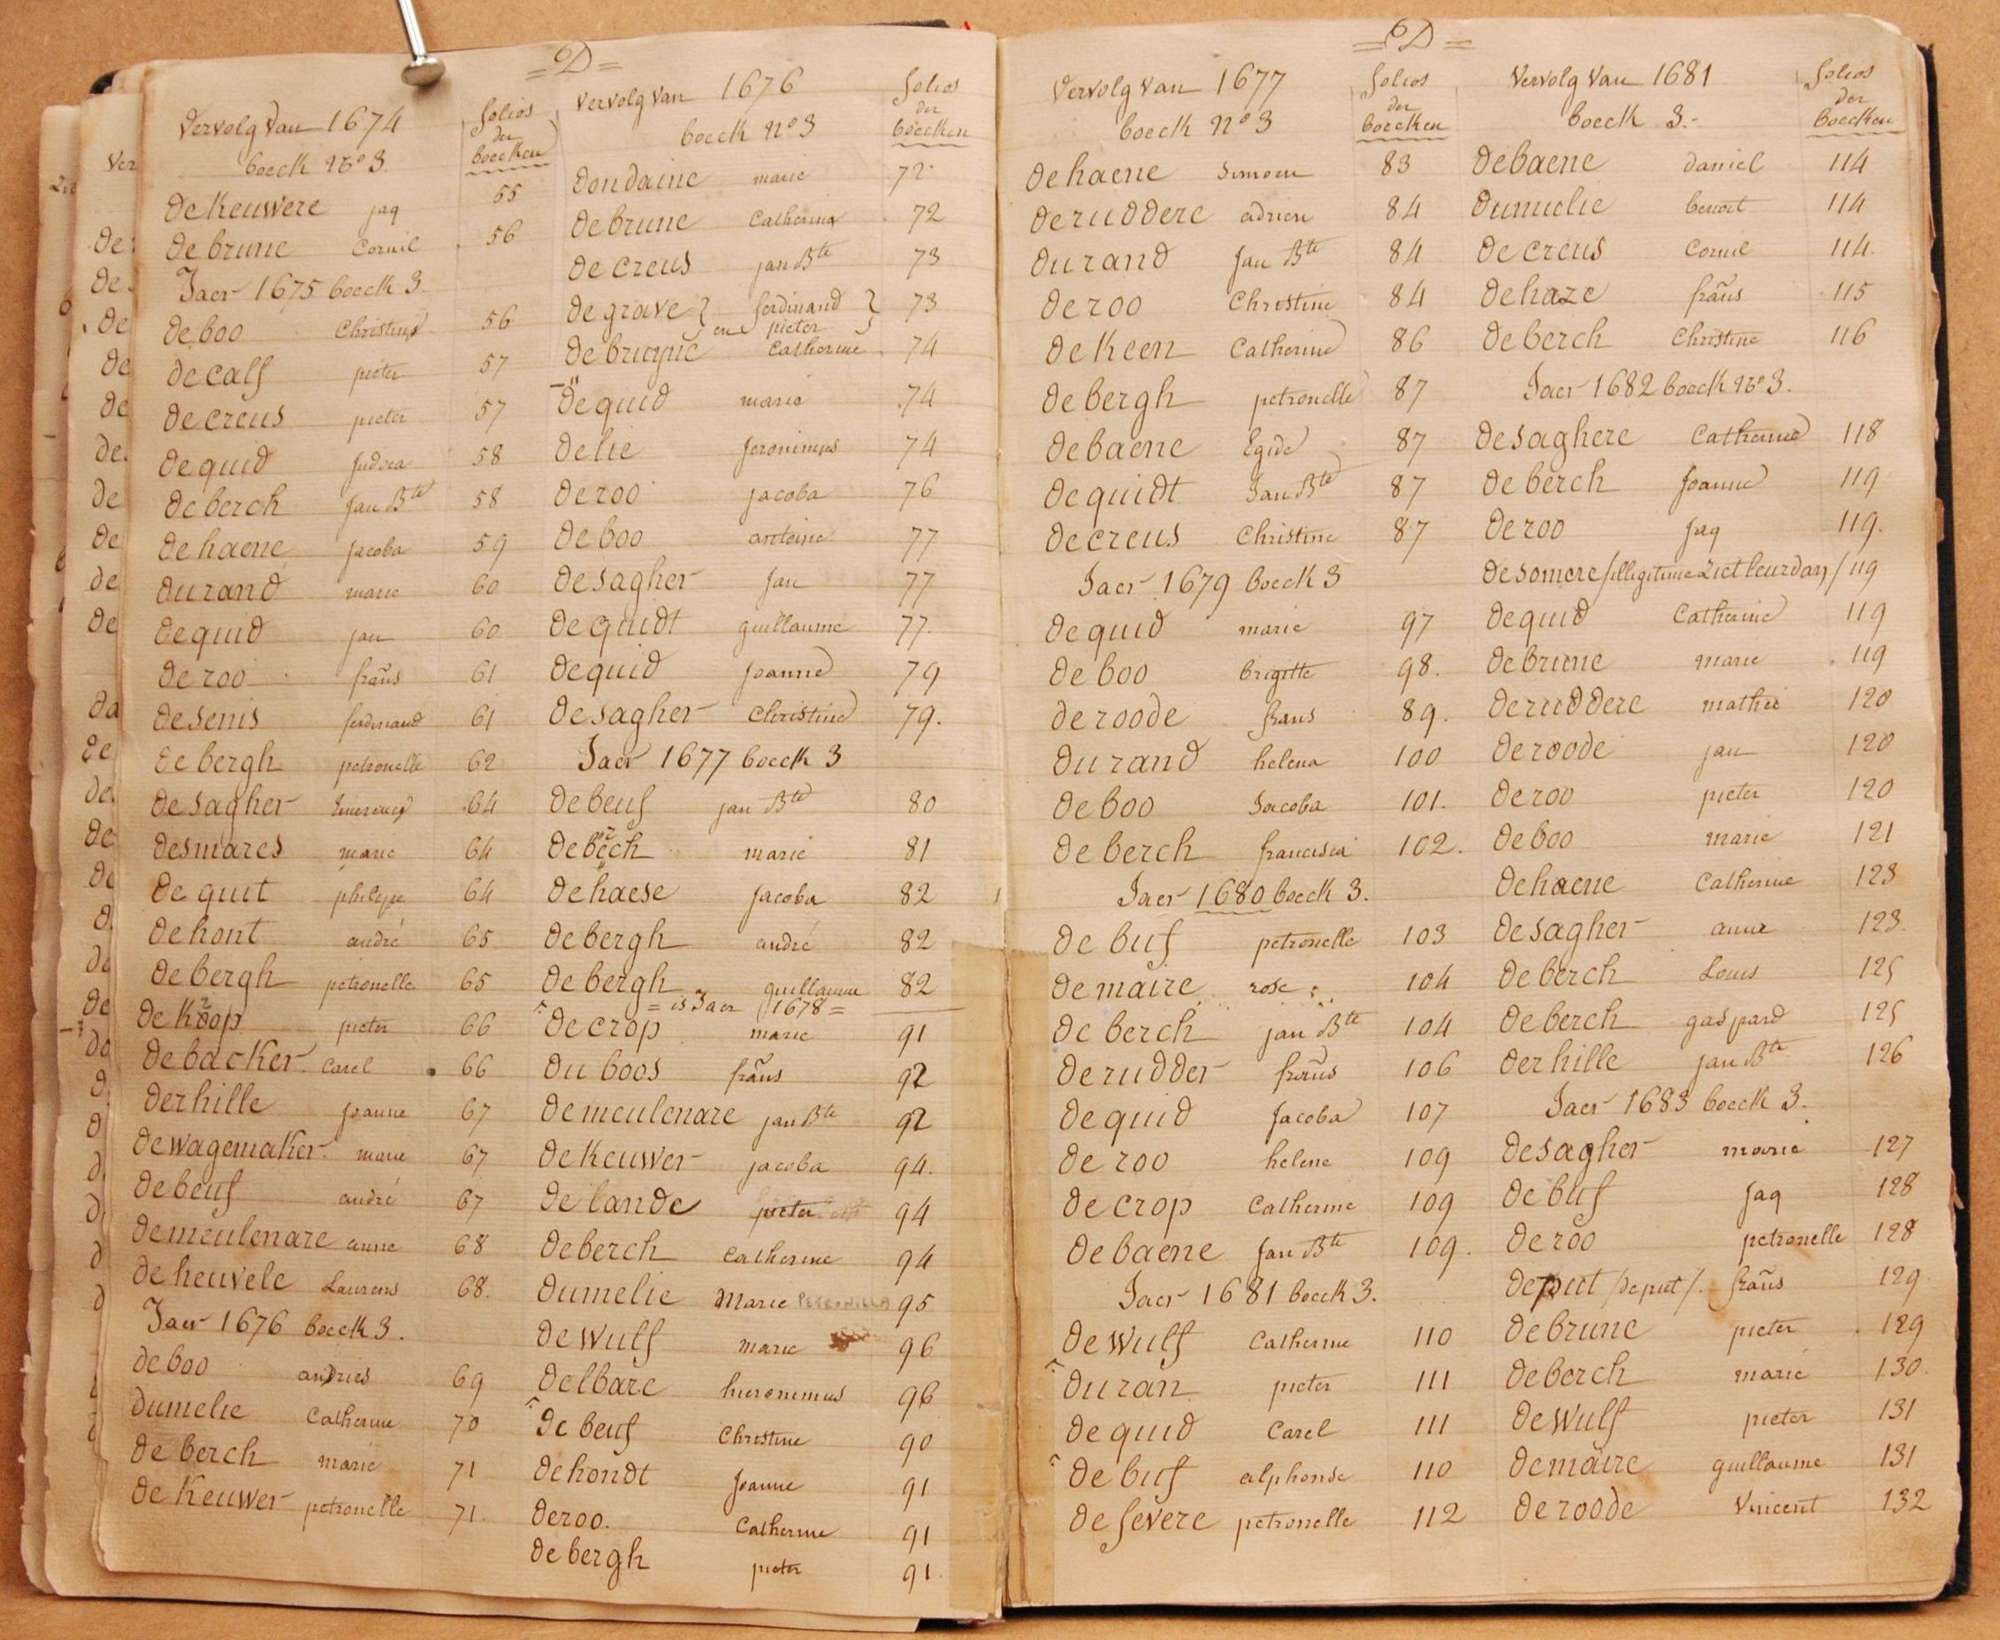 =D=
Vervolg Van 1674
boeck No 3.
folios
der
boecken
de Keuwere jaq 55
de brune Cornil 56
Jaer 1675 boeck 3.
de boo Christine 56
de calf pieter 57
de creus pieter 57
de quid Judoca 58
de berch Jan Bte 58
de haene Jacoba 59
du rand marie 60
de quid jan 60
de roo frans 61
de senis ferdinand 61
de bergh petronelle 62
de sagher 64
desmares marie 64
de quit philype 64
de hont andré 65
de bergh petronelle 65
de Kroop pieter 66
de backer Carel 66
derhille Joanne 67
de wagemaker marie 67
de beuf andré 67
de meulenare anne 68
de heuvele Laurens 68.
Jaer 1676 boeck 3.
de boo andries 69
dumelie Catherine 70
de berch marie 71
de Keuwer petronelle 71.
Vervolg Van 1676
boeck No 3
folios
der
boecken
dondaine marie 72
de brune Catherina 72
de creus jan Bte 73
de grave } ferdinand } 73
en pieter
de bruyne Catherine 74
de quid marie 74
de lie Jeronimus 74
de roo jacoba 76
de boo antoine 77
de sagher Jan 77
de quidt guillaume 77.
de quid Joanne 79
de sagher Christine 79.
Jaer 1677 boeck 3
de beuf jan Bte 80
de berch marie 81
de haese Jacoba 82
de bergh andré 82
de bergh guillaume 82
= is Jaer 1678 =
de crop marie 91
du boos frans 92
de meulenare jan Bte 92
de Keuwer jacoba 94.
de lande pieter 94
de berch Catherine 94
dumelie Marie PETRONILLA 95
de wulf marie 96
delbare hieronimus 96
de beuf Christine 90
de hondt Joanne 91
de roo. Catherine 91
de bergh pieter 91.
=D=
Vervolg Van 1677
boeck No 3
folios
der
boecken
de haene Simoen 83
de ruddere adrien 84
du rand Jan Bte 84
de roo Christine 84
de Keen Catherine 86
de bergh petronelle 87
de baene Egide 87
de quidt Jan Bte 87
de creus Christine 87
Jaer 1679 boeck 3
de quid marie 97
de boo brigitte 98.
de roode frans 89.
du rand helena 100
de boo Jacoba 101.
de berch francisca 102.
Jaer 1680 boeck 3.
de buf petronelle 103
de maire rose 104
de berch jan Bte 104
de rudder frans 106
de quid Jacoba 107
de roo helene 109
de crop Catherine 109
de baene Jan Bte 109.
Jaer 1681 boeck 3.
de wulf Catherine 110
du ran pieter 111
de quid Carel 111
de buf alphonse 110
de severe petronelle 112
Vervolg Van 1681
boeck 3.-
folios
der
boecken
de baene daniel 114
dumelie benoit 114
de creus Cornil 114.
de haze frans 115
de berch Christine 116
Jaer 1682 boeck No 3.
de saghere Catherine 118
de berch Joanne 119
de roo Jaq 119.
de somere /illegitime 119
de quid Catherine 119
de brune marie 119
de ruddere mathie 120
de roode jan 120
de roo pieter 120
de boo marie 121
de haene Catherine 123
de sagher anna 123.
de berch Louis 125
de berch gaspard 125
derhille jan Bte 126
Jaer 1683 boeck 3.
de sagher marie 127
de buf Jaq 128
de roo petronelle 128
de put /de put/. frans 129
de brune pieter 129
de berch marie 130.
de wulf pieter 131
de maire guillaume 131
de roode Vincent 132